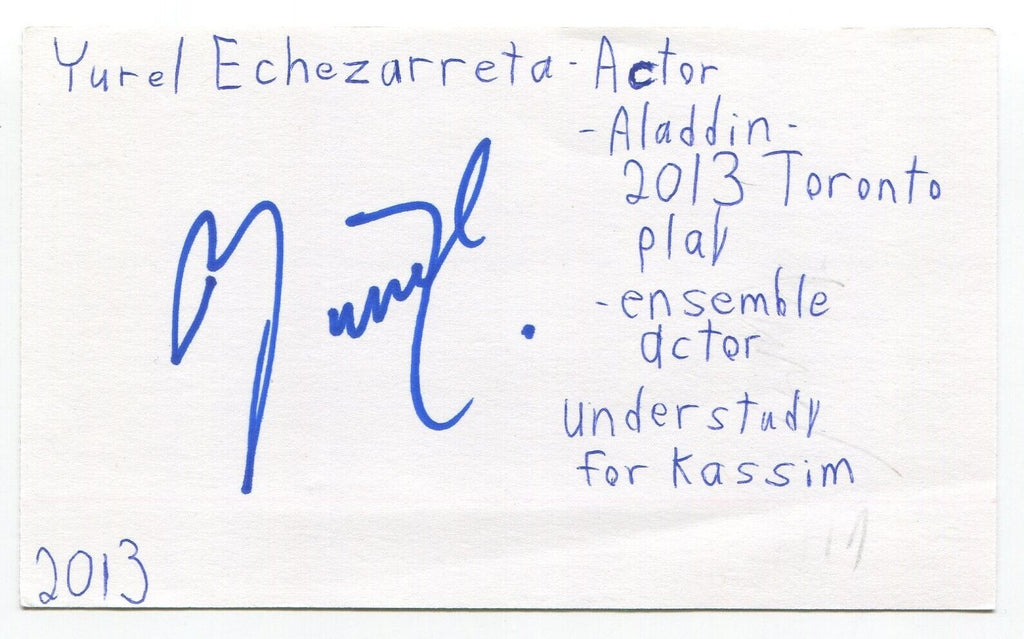 Yurel Echezarreta - Actor
- Aladdin -
2013 Toronto
play
- ensemble
actor
understudy
for Kassim
2013